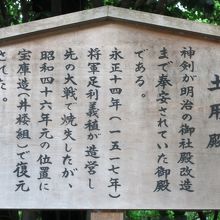 土用殿
神剣が明治の御社殿改造
まで奉安されていた御殿
である。
永正十四年（一五一七年）
将軍足利義稙が造営し
先の大戦で焼失したが、
昭和四十六年元の位置に
宝庫造（井楼組）で復元
された。